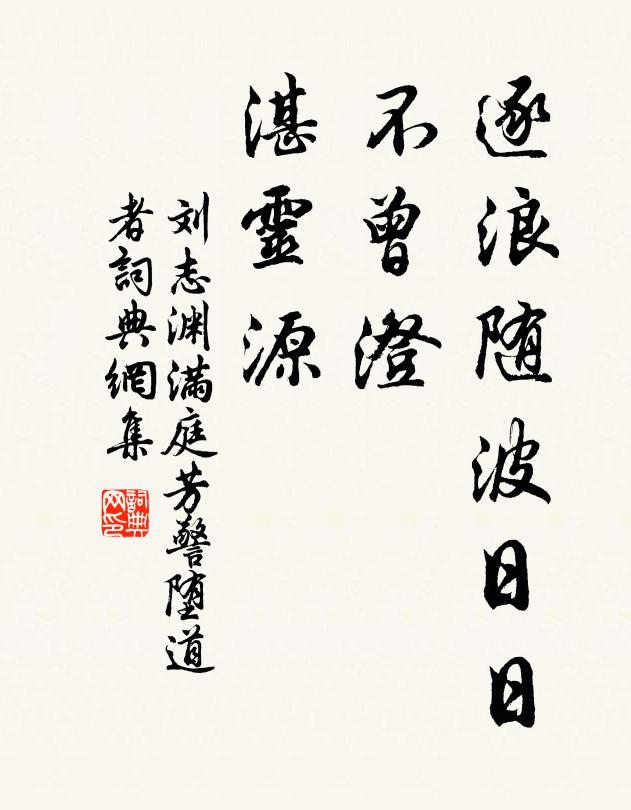 逐浪随波日日
不曾澄
湛靈源
刘志渊满庭芳警堕道
者詞典網集
詞典网印